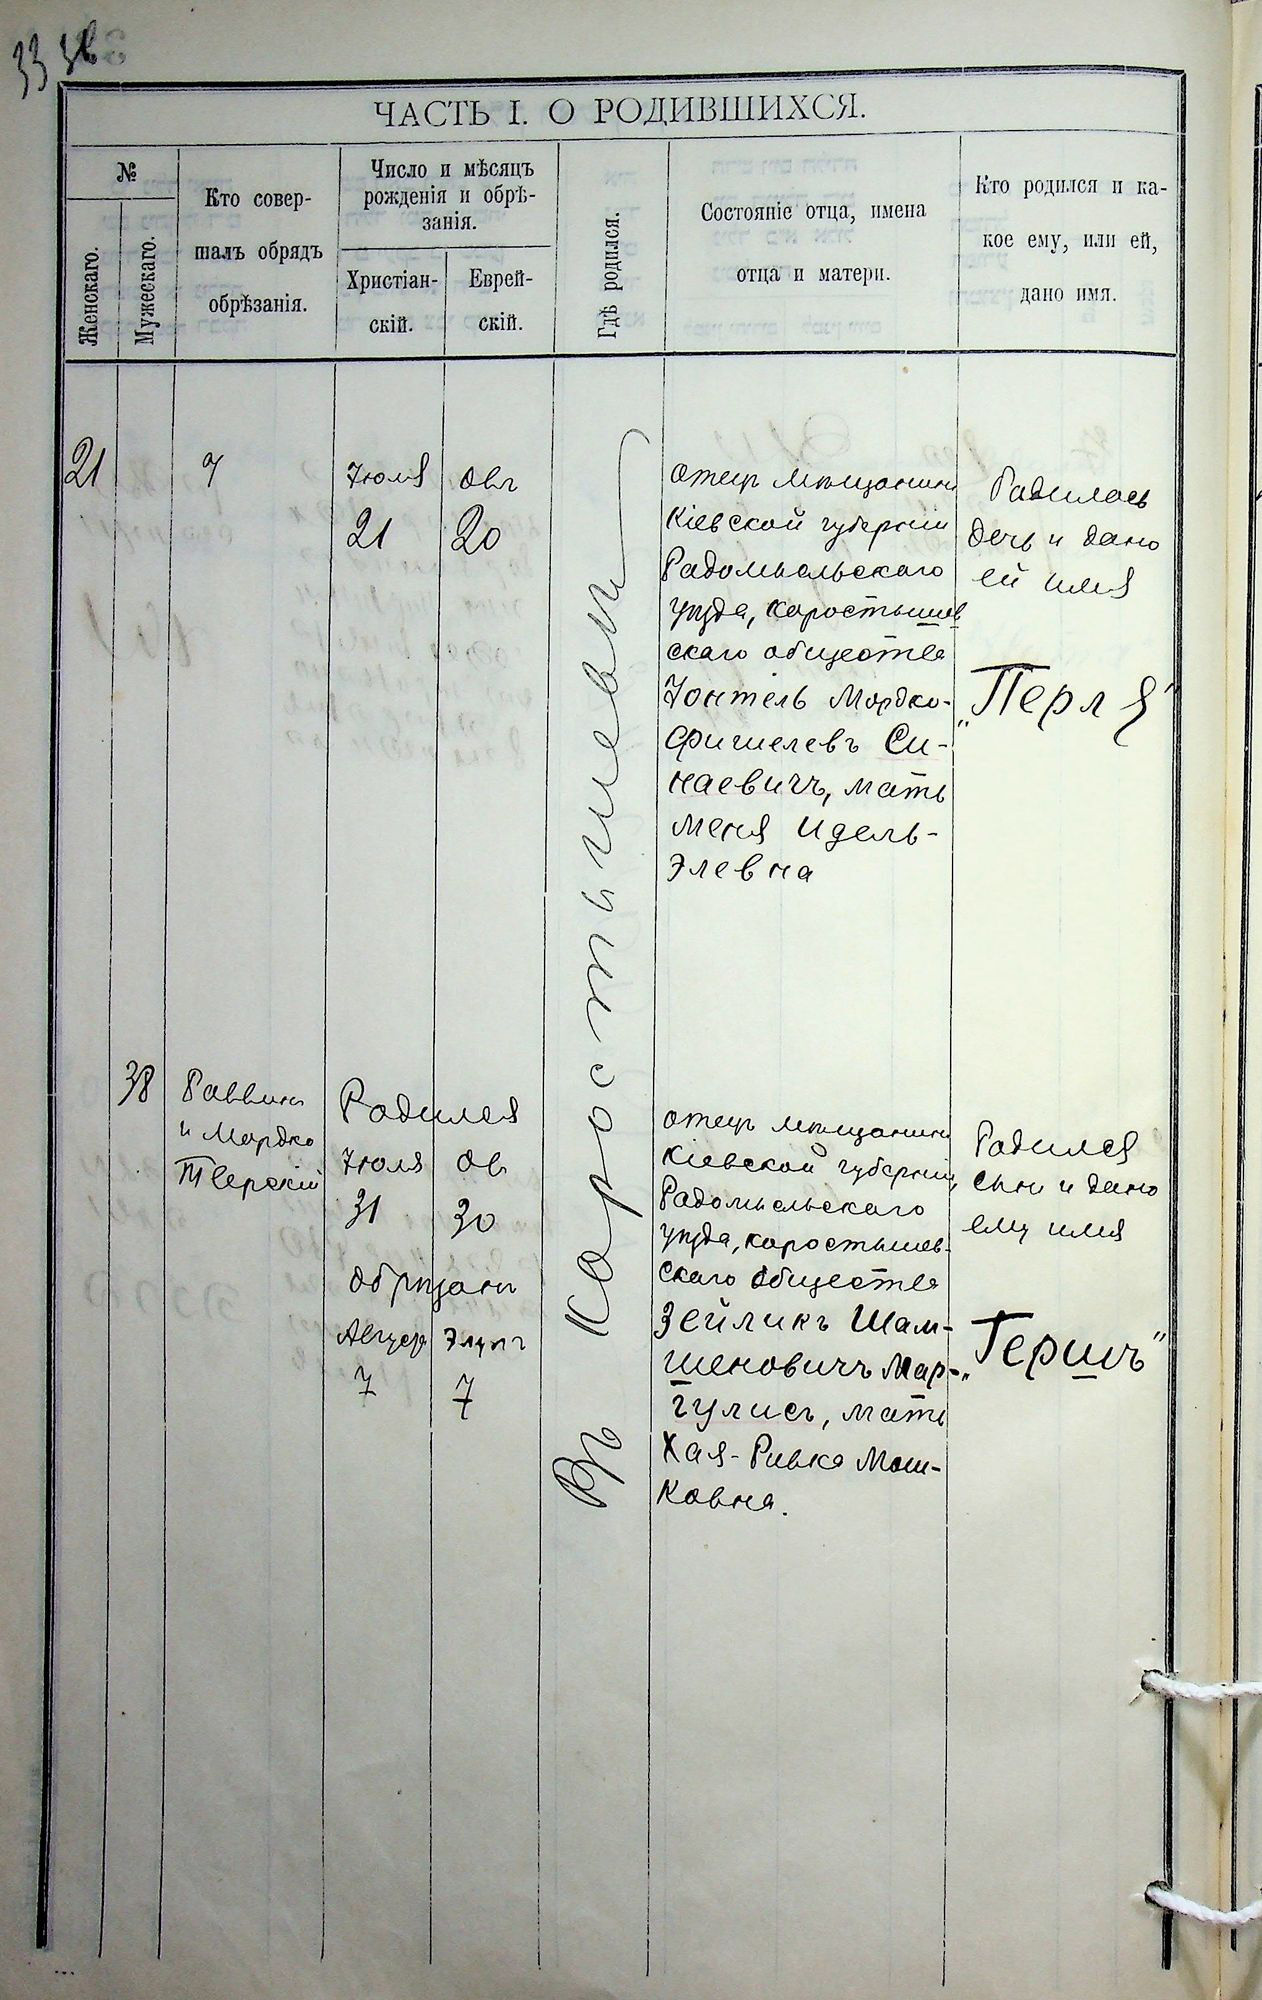 33
ЧАСТЬ I. О РОДИВШИХСЯ.
№
Женскаго.
Мужескаго.
Кто совер-
шалъ обрядъ
обрѣзанія.
Число и мѣсяцъ
рожденія и обрѣ-
занія.
Христіан-
скій.
Еврей-
скій.
Гдѣ родился.
Состояніе отца, имена
отца и матери.
Кто родился и ка-
кое ему, или ей,
дано имя.
21
Іюля
21
Овъ
20
Въ Коростышевѣ
отецъ мѣщанинъ
Кіевской губерніи
Радомысльскаго
уѣзда, коростышев
скаго общества
Іонтель Мордко-
Фишелевъ Си-
наевичъ, мать
Меня Идель-
Элевна
Родилась
дочь и дано
ей имя
„Перля"
38
Раввинъ
и Мордко
Тверскій
Родился
Іюля
31
Ов
30
Обрѣзанъ
Августа
7
Элулъ
7
отецъ мѣщанинъ
Кіевской губерніи,
Радомысльскаго
уѣзда, коростышев-
скаго общества
Зейликъ Шам-
шеновичъ Мар-
гулисъ, мать
Хая-Ривка Мош-
ковна.
Родился
сынъ и дано
ему имя
„Гершъ"